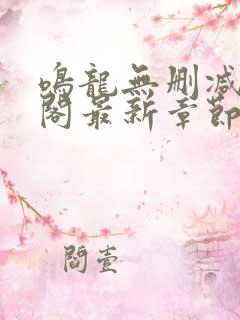 鳴龍無删减
閣最新章節
閻壹